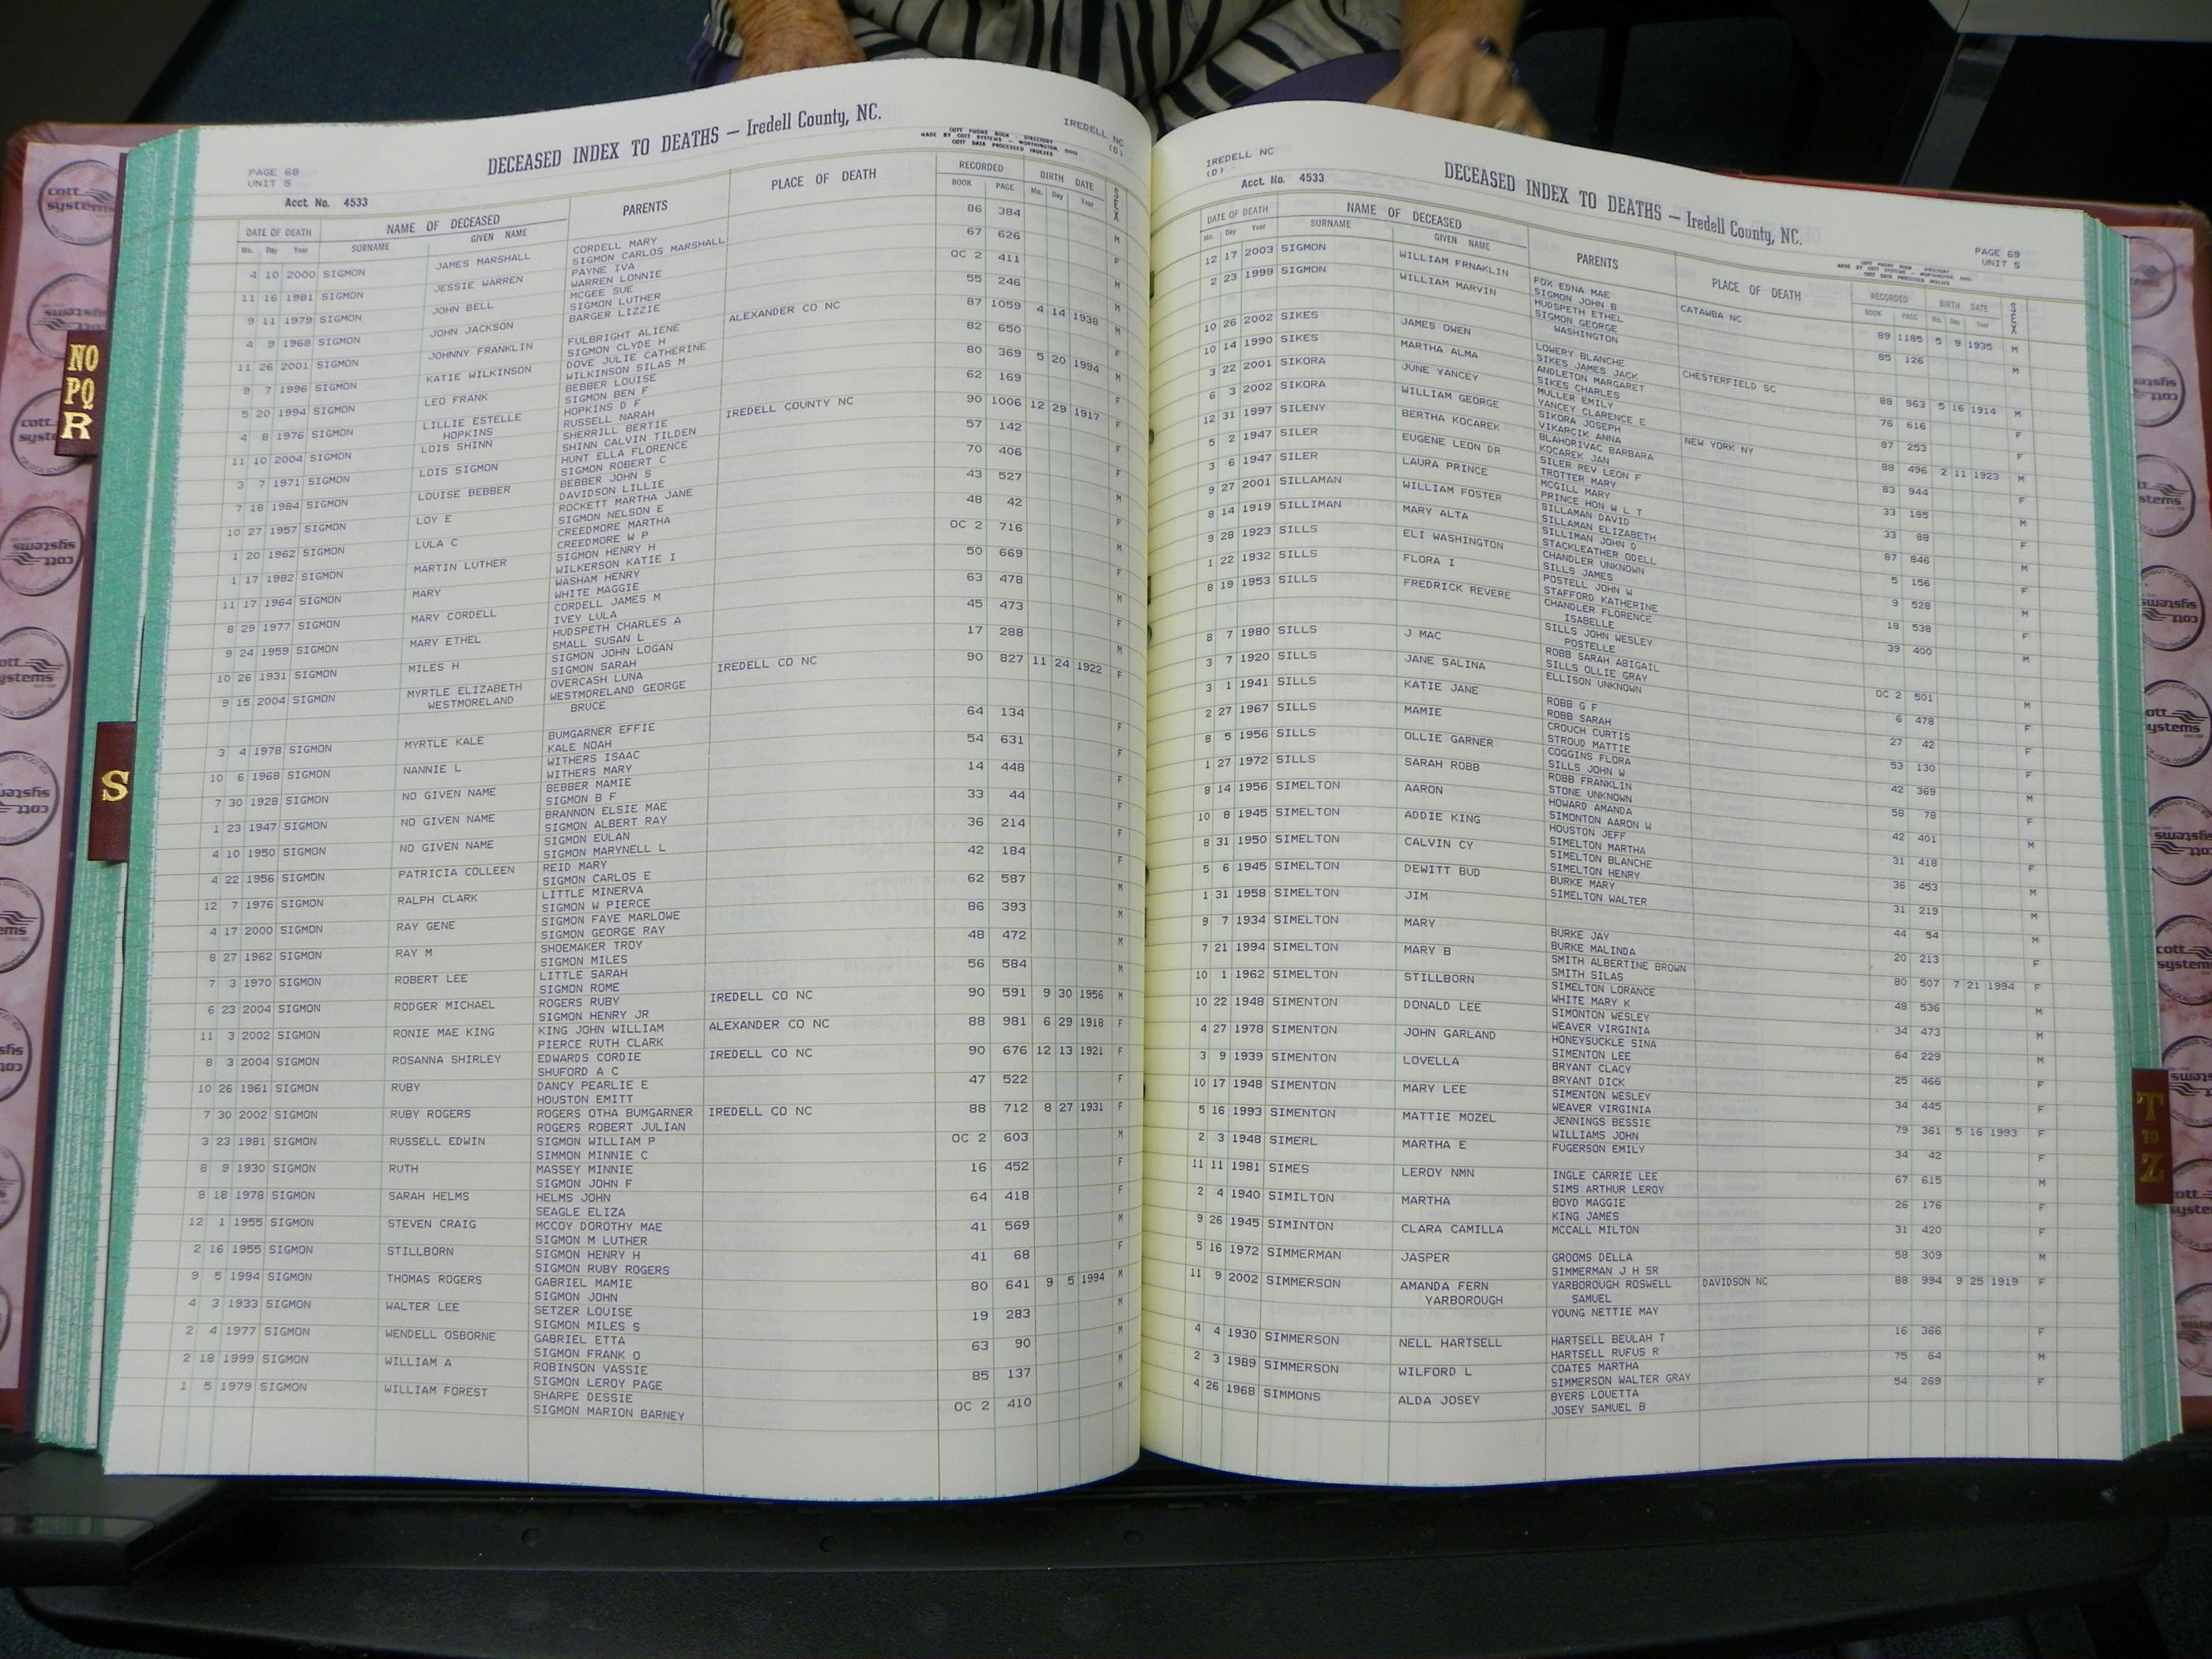 PAGE 68
UNIT S
DECEASED INDEX TO DEATHS — Iredell County, NC.
COTT PHONE BOOK - DIRECTORY
MADE BY COTT SYSTEMS - WORTHINGTON, OHIO
COTT DATA PROCESSED INDEXES
IREDELL NC
(D)
Acct. No. 4533
DATE OF DEATH NAME OF DECEASED PARENTS PLACE OF DEATH RECORDED BIRTH DATE SEX
Mo. Day Year SURNAME GIVEN NAME BOOK PAGE Mo. Day Year
4 10 2000 SIGMON JAMES MARSHALL CORDELL MARY 86 384 M
SIGMON CARLOS MARSHALL
11 16 1981 SIGMON JESSIE WARREN PAYNE IVA 67 626 F
WARREN LONNIE
9 11 1979 SIGMON JOHN BELL MCGEE SUE OC 2 411 M
SIGMON LUTHER
4 9 1968 SIGMON JOHN JACKSON BARGER LIZZIE 55 246 M
11 26 2001 SIGMON JOHNNY FRANKLIN FULBRIGHT ALIENE ALEXANDER CO NC 87 1059 4 14 1938 M
SIGMON CLYDE H
9 7 1996 SIGMON KATIE WILKINSON DOVE JULIE CATHERINE 82 650 F
WILKINSON SILAS M
5 20 1994 SIGMON LEO FRANK BEBBER LOUISE 80 369 5 20 1994 M
SIGMON BEN F
4 8 1976 SIGMON LILLIE ESTELLE HOPKINS D F 62 169 F
HOPKINS RUSSELL NARAH
11 10 2004 SIGMON LOIS SHINN SHERRILL BERTIE IREDELL COUNTY NC 90 1006 12 29 1917 F
SHINN CALVIN TILDEN
3 7 1971 SIGMON LOIS SIGMON HUNT ELLA FLORENCE 57 142 F
SIGMON ROBERT C
7 18 1984 SIGMON LOUISE BEBBER BEBBER JOHN S 70 406 F
DAVIDSON LILLIE
10 27 1957 SIGMON LOY E ROCKETT MARTHA JANE 43 527 M
SIGMON NELSON E
1 20 1962 SIGMON LULA C CREEDMORE MARTHA 48 42 F
CREEDMORE W P
1 17 1982 SIGMON MARTIN LUTHER SIGMON HENRY H OC 2 716 M
WILKERSON KATIE I
11 17 1964 SIGMON MARY WASHAM HENRY 50 669 F
WHITE MAGGIE
8 29 1977 SIGMON MARY CORDELL CORDELL JAMES M 63 478
IVEY LULA
9 24 1959 SIGMON MARY ETHEL HUDSPETH CHARLES A 45 473 F
SMALL SUSAN L
10 26 1931 SIGMON MILES H SIGMON JOHN LOGAN 17 288 M
SIGMON SARAH
9 15 2004 SIGMON MYRTLE ELIZABETH OVERCASH LUNA IREDELL CO NC 90 827 11 24 1922 F
WESTMORELAND WESTMORELAND GEORGE
BRUCE
3 4 1978 SIGMON MYRTLE KALE BUMGARNER EFFIE 64 134 F
KALE NOAH
10 6 1968 SIGMON NANNIE L WITHERS ISAAC 54 631 F
WITHERS MARY
7 30 1928 SIGMON NO GIVEN NAME BEBBER MAMIE 14 448 F
SIGMON B F
1 23 1947 SIGMON NO GIVEN NAME BRANNON ELSIE MAE 33 44 F
SIGMON ALBERT RAY
4 10 1950 SIGMON NO GIVEN NAME SIGMON EULAN 36 214 F
SIGMON MARYNELL L
4 22 1956 SIGMON PATRICIA COLLEEN REID MARY 42 184 F
SIGMON CARLOS E
12 7 1976 SIGMON RALPH CLARK LITTLE MINERVA 62 587 M
SIGMON W PIERCE
4 17 2000 SIGMON RAY GENE SIGMON FAYE MARLOWE 86 393 M
SIGMON GEORGE RAY
8 27 1962 SIGMON RAY M SHOEMAKER TROY 48 472 M
SIGMON MILES
7 3 1970 SIGMON ROBERT LEE LITTLE SARAH 56 584 M
SIGMON ROME
6 23 2004 SIGMON RODGER MICHAEL ROGERS RUBY IREDELL CO NC 90 591 9 30 1956 M
SIGMON HENRY JR
11 3 2002 SIGMON RONIE MAE KING KING JOHN WILLIAM ALEXANDER CO NC 88 981 6 29 1918 F
PIERCE RUTH CLARK
8 3 2004 SIGMON ROSANNA SHIRLEY EDWARDS CORDIE IREDELL CO NC 90 676 12 13 1921 F
SHUFORD A C
10 26 1961 SIGMON RUBY DANCY PEARLIE E 47 522 F
HOUSTON EMITT
7 30 2002 SIGMON RUBY ROGERS ROGERS OTHA BUMGARNER IREDELL CO NC 88 712 8 27 1931 F
ROGERS ROBERT JULIAN
3 23 1981 SIGMON RUSSELL EDWIN SIGMON WILLIAM P OC 2 603 M
SIMMON MINNIE C
8 9 1930 SIGMON RUTH MASSEY MINNIE 16 452 F
SIGMON JOHN F
8 18 1978 SIGMON SARAH HELMS HELMS JOHN 64 418 F
SEAGLE ELIZA
12 1 1955 SIGMON STEVEN CRAIG MCCOY DOROTHY MAE 41 569 M
SIGMON M LUTHER
2 16 1955 SIGMON STILLBORN SIGMON HENRY H 41 68 F
SIGMON RUBY ROGERS
9 5 1994 SIGMON THOMAS ROGERS GABRIEL MAMIE 80 641 9 5 1994 M
SIGMON JOHN
4 3 1933 SIGMON WALTER LEE SETZER LOUISE 19 283 M
SIGMON MILES S
2 4 1977 SIGMON WENDELL OSBORNE GABRIEL ETTA 63 90 M
SIGMON FRANK O
2 18 1999 SIGMON WILLIAM A ROBINSON VASSIE 85 137 M
SIGMON LEROY PAGE
1 5 1979 SIGMON WILLIAM FOREST SHARPE DESSIE OC 2 410
SIGMON MARION BARNEY
IREDELL NC
(D)
DECEASED INDEX TO DEATHS — Iredell County, NC.
PAGE 69
UNIT S
Acct. No. 4533
COTT PHONE BOOK - DIRECTORY
MADE BY COTT SYSTEMS - WORTHINGTON, OHIO
COTT DATA PROCESSED INDEXES
DATE OF DEATH NAME OF DECEASED PARENTS PLACE OF DEATH RECORDED BIRTH DATE SEX
Mo. Day Year SURNAME GIVEN NAME BOOK PAGE Mo. Day Year
12 17 2003 SIGMON WILLIAM FRNAKLIN FOX EDNA MAE CATAWBA NC 89 1185 5 9 1935 M
SIGMON JOHN B
2 23 1999 SIGMON WILLIAM MARVIN HUDSPETH ETHEL 85 126 M
SIGMON GEORGE
WASHINGTON
10 26 2002 SIKES JAMES OWEN LOWERY BLANCHE CHESTERFIELD SC 88 963 5 16 1914 M
SIKES JAMES JACK
10 14 1990 SIKES MARTHA ALMA ANDLETON MARGARET 76 616 F
SIKES CHARLES
3 22 2001 SIKORA JUNE YANCEY MULLER EMILY 87 253 F
YANCEY CLARENCE E
6 3 2002 SIKORA WILLIAM GEORGE SIKORA JOSEPH NEW YORK NY 88 496 2 11 1923 M
VIKARCIK ANNA
12 31 1997 SILENY BERTHA KOCAREK BLAHORIVAC BARBARA 83 944 F
KOCAREK JAN
5 2 1947 SILER EUGENE LEON DR SILER REV LEON F 33 185 M
TROTTER MARY
3 6 1947 SILER LAURA PRINCE MCGILL MARY 33 88 F
PRINCE HON W L T
9 27 2001 SILLAMAN WILLIAM FOSTER SILLAMAN DAVID 87 846 M
SILLAMAN ELIZABETH
8 14 1919 SILLIMAN MARY ALTA SILLIMAN JOHN D 5 156 F
STACKLEATHER ODELL
9 28 1923 SILLS ELI WASHINGTON CHANDLER UNKNOWN 9 528 M
SILLS JAMES
1 22 1932 SILLS FLORA I POSTELL JOHN W 18 538 F
STAFFORD KATHERINE
8 19 1953 SILLS FREDRICK REVERE CHANDLER FLORENCE 39 400 M
ISABELLE
SILLS JOHN WESLEY
POSTELLE
8 7 1980 SILLS J MAC ROBB SARAH ABIGAIL OC 2 501 M
SILLS OLLIE GRAY
3 7 1920 SILLS JANE SALINA ELLISON UNKNOWN 6 478 F
3 1 1941 SILLS KATIE JANE ROBB G F 27 42 F
ROBB SARAH
2 27 1967 SILLS MAMIE CROUCH CURTIS 53 130 F
STROUD MATTIE
8 5 1956 SILLS OLLIE GARNER COGGINS FLORA 42 369 M
SILLS JOHN W
1 27 1972 SILLS SARAH ROBB ROBB FRANKLIN 58 78 F
STONE UNKNOWN
8 14 1956 SIMELTON AARON HOWARD AMANDA 42 401 M
SIMONTON AARON W
10 8 1945 SIMELTON ADDIE KING HOUSTON JEFF 31 418 F
SIMELTON MARTHA
8 31 1950 SIMELTON CALVIN CY SIMELTON BLANCHE 36 453 M
SIMELTON HENRY
5 6 1945 SIMELTON DEWITT BUD BURKE MARY 31 219 M
SIMELTON WALTER
1 31 1958 SIMELTON JIM 44 54 M
9 7 1934 SIMELTON MARY BURKE JAY 20 213 F
BURKE MALINDA
7 21 1994 SIMELTON MARY B SMITH ALBERTINE BROWN 80 507 7 21 1994 F
SMITH SILAS
10 1 1962 SIMELTON STILLBORN SIMELTON LORANCE 48 536 M
WHITE MARY K
10 22 1948 SIMENTON DONALD LEE SIMONTON WESLEY 34 473 M
WEAVER VIRGINIA
4 27 1978 SIMENTON JOHN GARLAND HONEYSUCKLE SINA 64 229 M
SIMENTON LEE
3 9 1939 SIMENTON LOVELLA BRYANT CLACY 25 466 F
BRYANT DICK
10 17 1948 SIMENTON MARY LEE SIMENTON WESLEY 34 445 F
WEAVER VIRGINIA
5 16 1993 SIMENTON MATTIE MOZEL JENNINGS BESSIE 79 361 5 16 1993 F
WILLIAMS JOHN
2 3 1948 SIMERL MARTHA E FUGERSON EMILY 34 42 F
11 11 1981 SIMES LEROY NMN INGLE CARRIE LEE 67 615 M
SIMS ARTHUR LEROY
2 4 1940 SIMILTON MARTHA BOYD MAGGIE 26 176 F
KING JAMES
9 26 1945 SIMINTON CLARA CAMILLA MCCALL MILTON 31 420 F
5 16 1972 SIMMERMAN JASPER GROOMS DELLA 58 309 M
SIMMERMAN J H SR
11 9 2002 SIMMERSON AMANDA FERN YARBOROUGH ROSWELL DAVIDSON NC 88 994 9 25 1919 F
YARBOROUGH SAMUEL
YOUNG NETTIE MAY
4 4 1930 SIMMERSON NELL HARTSELL HARTSELL BEULAH T 16 366 F
HARTSELL RUFUS R
2 3 1989 SIMMERSON WILFORD L COATES MARTHA 75 64 M
SIMMERSON WALTER GRAY
4 26 1968 SIMMONS ALDA JOSEY BYERS LOUETTA 54 269 F
JOSEY SAMUEL B
NO
PQ
R
S
T
TO
Z
cott
systems